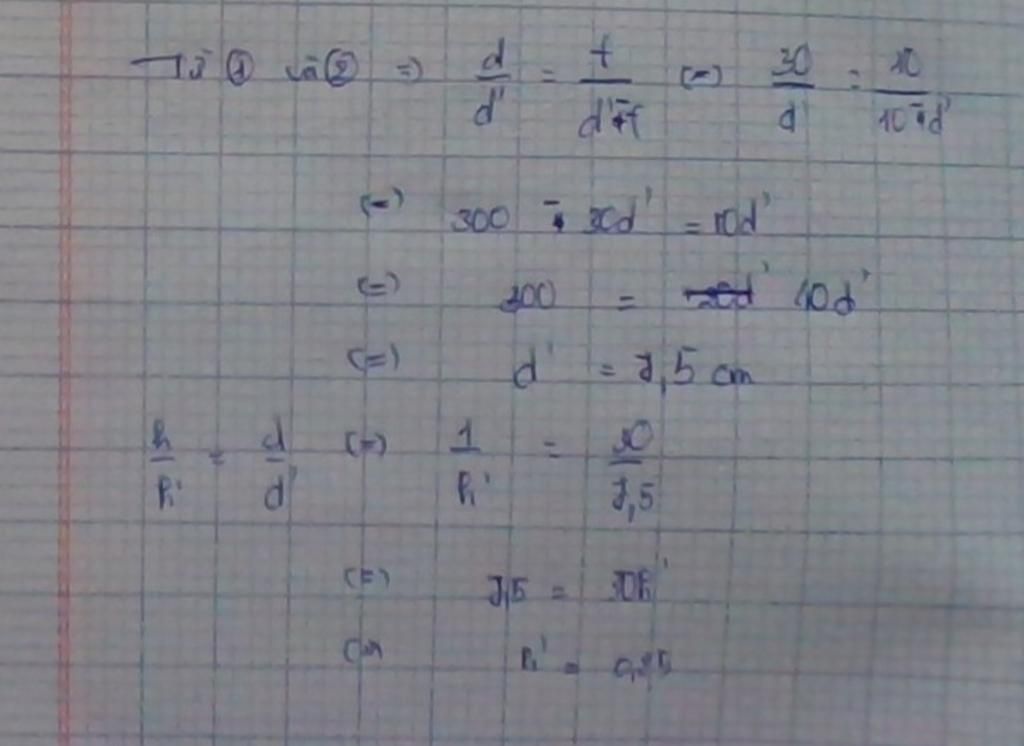 Từ ① và ② => d/d' = f/(d'-f) (=) 30/d' = 10/(10-d')
(=) 300 - 30d' = 10d'
(=) 300 = 40d'
(=) d' = 7,5 cm
h/h' = d/d' (=) 1/h' = 30/7,5
(=) 7,5 = 30h'
(=) h' = 0,25